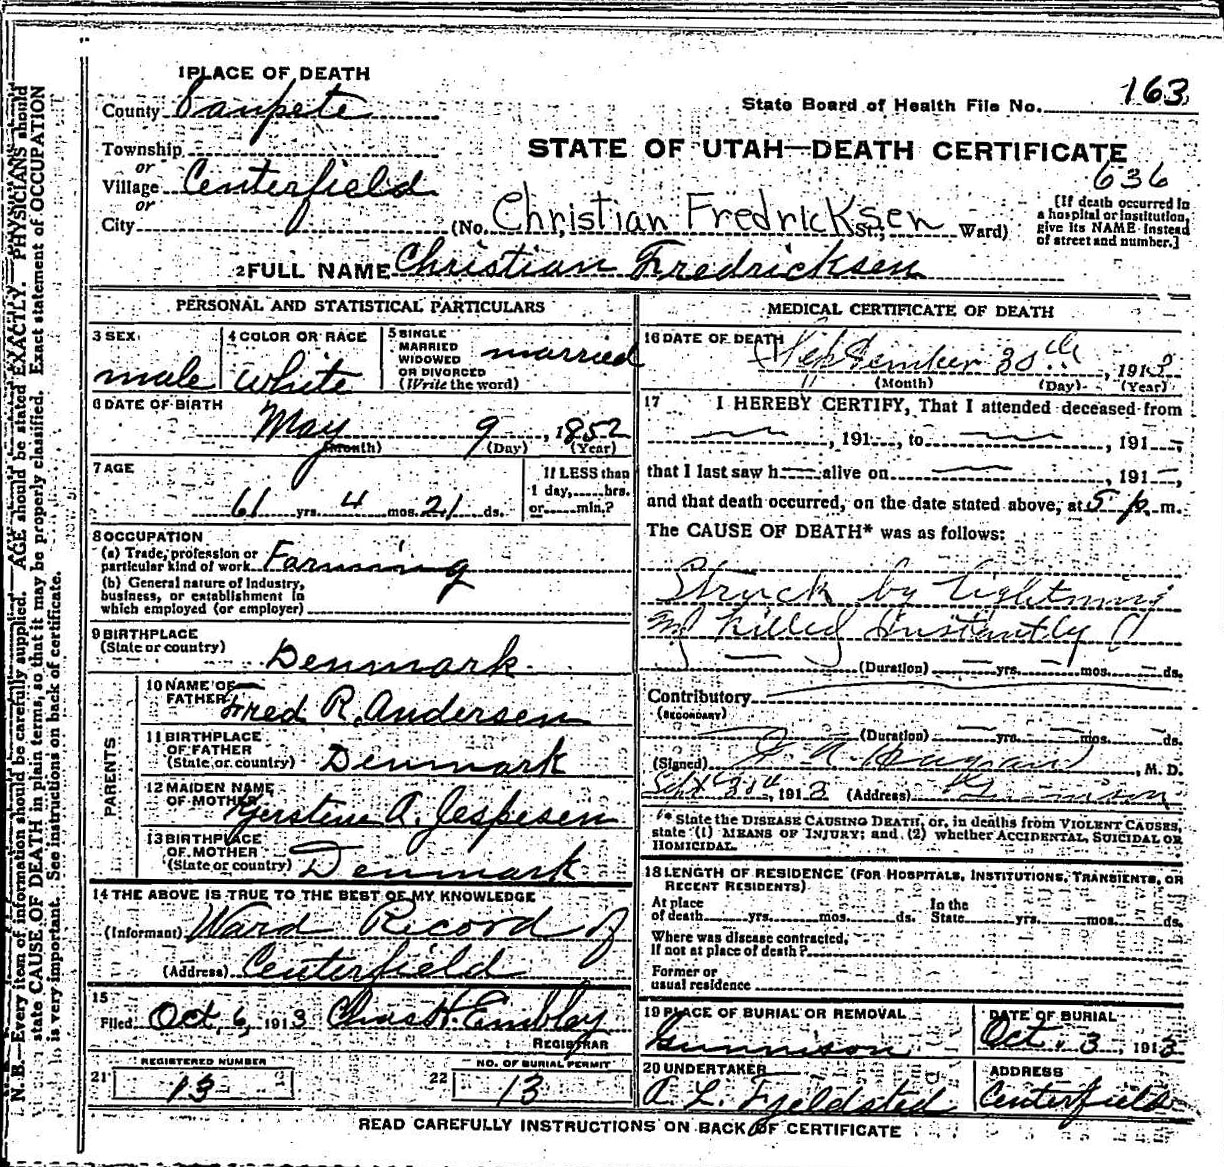 1 PLACE OF DEATH
County Sanpete
State Board of Health File No. 163
Township
or
Village Centerfield
or
City
STATE OF UTAH—DEATH CERTIFICATE
636
(No. Christian Fredricksen St.; Ward)
[If death occurred in
a hospital or institution,
give its NAME instead
of street and number.]
2 FULL NAME Christian Fredricksen
PERSONAL AND STATISTICAL PARTICULARS
3 SEX
male
4 COLOR OR RACE
White
5 SINGLE
MARRIED
WIDOWED
OR DIVORCED
(Write the word)
married
6 DATE OF BIRTH
May 9, 1852
(Month) (Day) (Year)
7 AGE
61 yrs. 4 mos. 21 ds.
If LESS than
1 day, hrs.
or min.?
8 OCCUPATION
(a) Trade, profession or
particular kind of work Farming
(b) General nature of Industry,
business, or establishment in
which employed (or employer)
9 BIRTHPLACE
(State or country)
Denmark
PARENTS
10 NAME OF
FATHER Fred R. Andersen
11 BIRTHPLACE
OF FATHER
(State or country) Denmark
12 MAIDEN NAME
OF MOTHER Kjerstene A. Jespesen
13 BIRTHPLACE
OF MOTHER
(State or country) Denmark
14 THE ABOVE IS TRUE TO THE BEST OF MY KNOWLEDGE
(Informant) Ward Record of
(Address) Centerfield
15
Filed Oct, 6, 1913 Chas H. Embley
REGISTRAR
REGISTERED NUMBER
21 13
NO. OF BURIAL PERMIT
22 13
MEDICAL CERTIFICATE OF DEATH
16 DATE OF DEATH
September 30th, 1913
(Month) (Day) (Year)
17 I HEREBY CERTIFY, That I attended deceased from
, 191 , to , 191 ,
that I last saw h alive on , 191 ,
and that death occurred, on the date stated above, at 5 p. m.
The CAUSE OF DEATH* was as follows:
Struck by Lightning
and Killed Instantly
(Duration) yrs. mos. ds.
Contributory
(SECONDARY)
(Duration) yrs. mos. ds.
(Signed) , M. D.
Sept 30th, 1913 (Address) Gunnison
* State the DISEASE CAUSING DEATH, or, in deaths from VIOLENT CAUSES,
state (1) MEANS OF INJURY; and (2) whether ACCIDENTAL, SUICIDAL OR
HOMICIDAL.
18 LENGTH OF RESIDENCE (FOR HOSPITALS, INSTITUTIONS, TRANSIENTS, OR
RECENT RESIDENTS)
At place
of death yrs. mos. ds.
In the
State yrs. mos. ds.
Where was disease contracted,
if not at place of death?
Former or
usual residence
19 PLACE OF BURIAL OR REMOVAL
Gunnison
DATE OF BURIAL
Oct. 3, 1913
20 UNDERTAKER
A L. Fjeldsted
ADDRESS
Centerfield
READ CAREFULLY INSTRUCTIONS ON BACK OF CERTIFICATE
N. B.—Every item of information should be carefully supplied. AGE should be stated EXACTLY. PHYSICIANS should
state CAUSE OF DEATH in plain terms, so that it may be properly classified. Exact statement of OCCUPATION
is very important. See instructions on back of certificate.